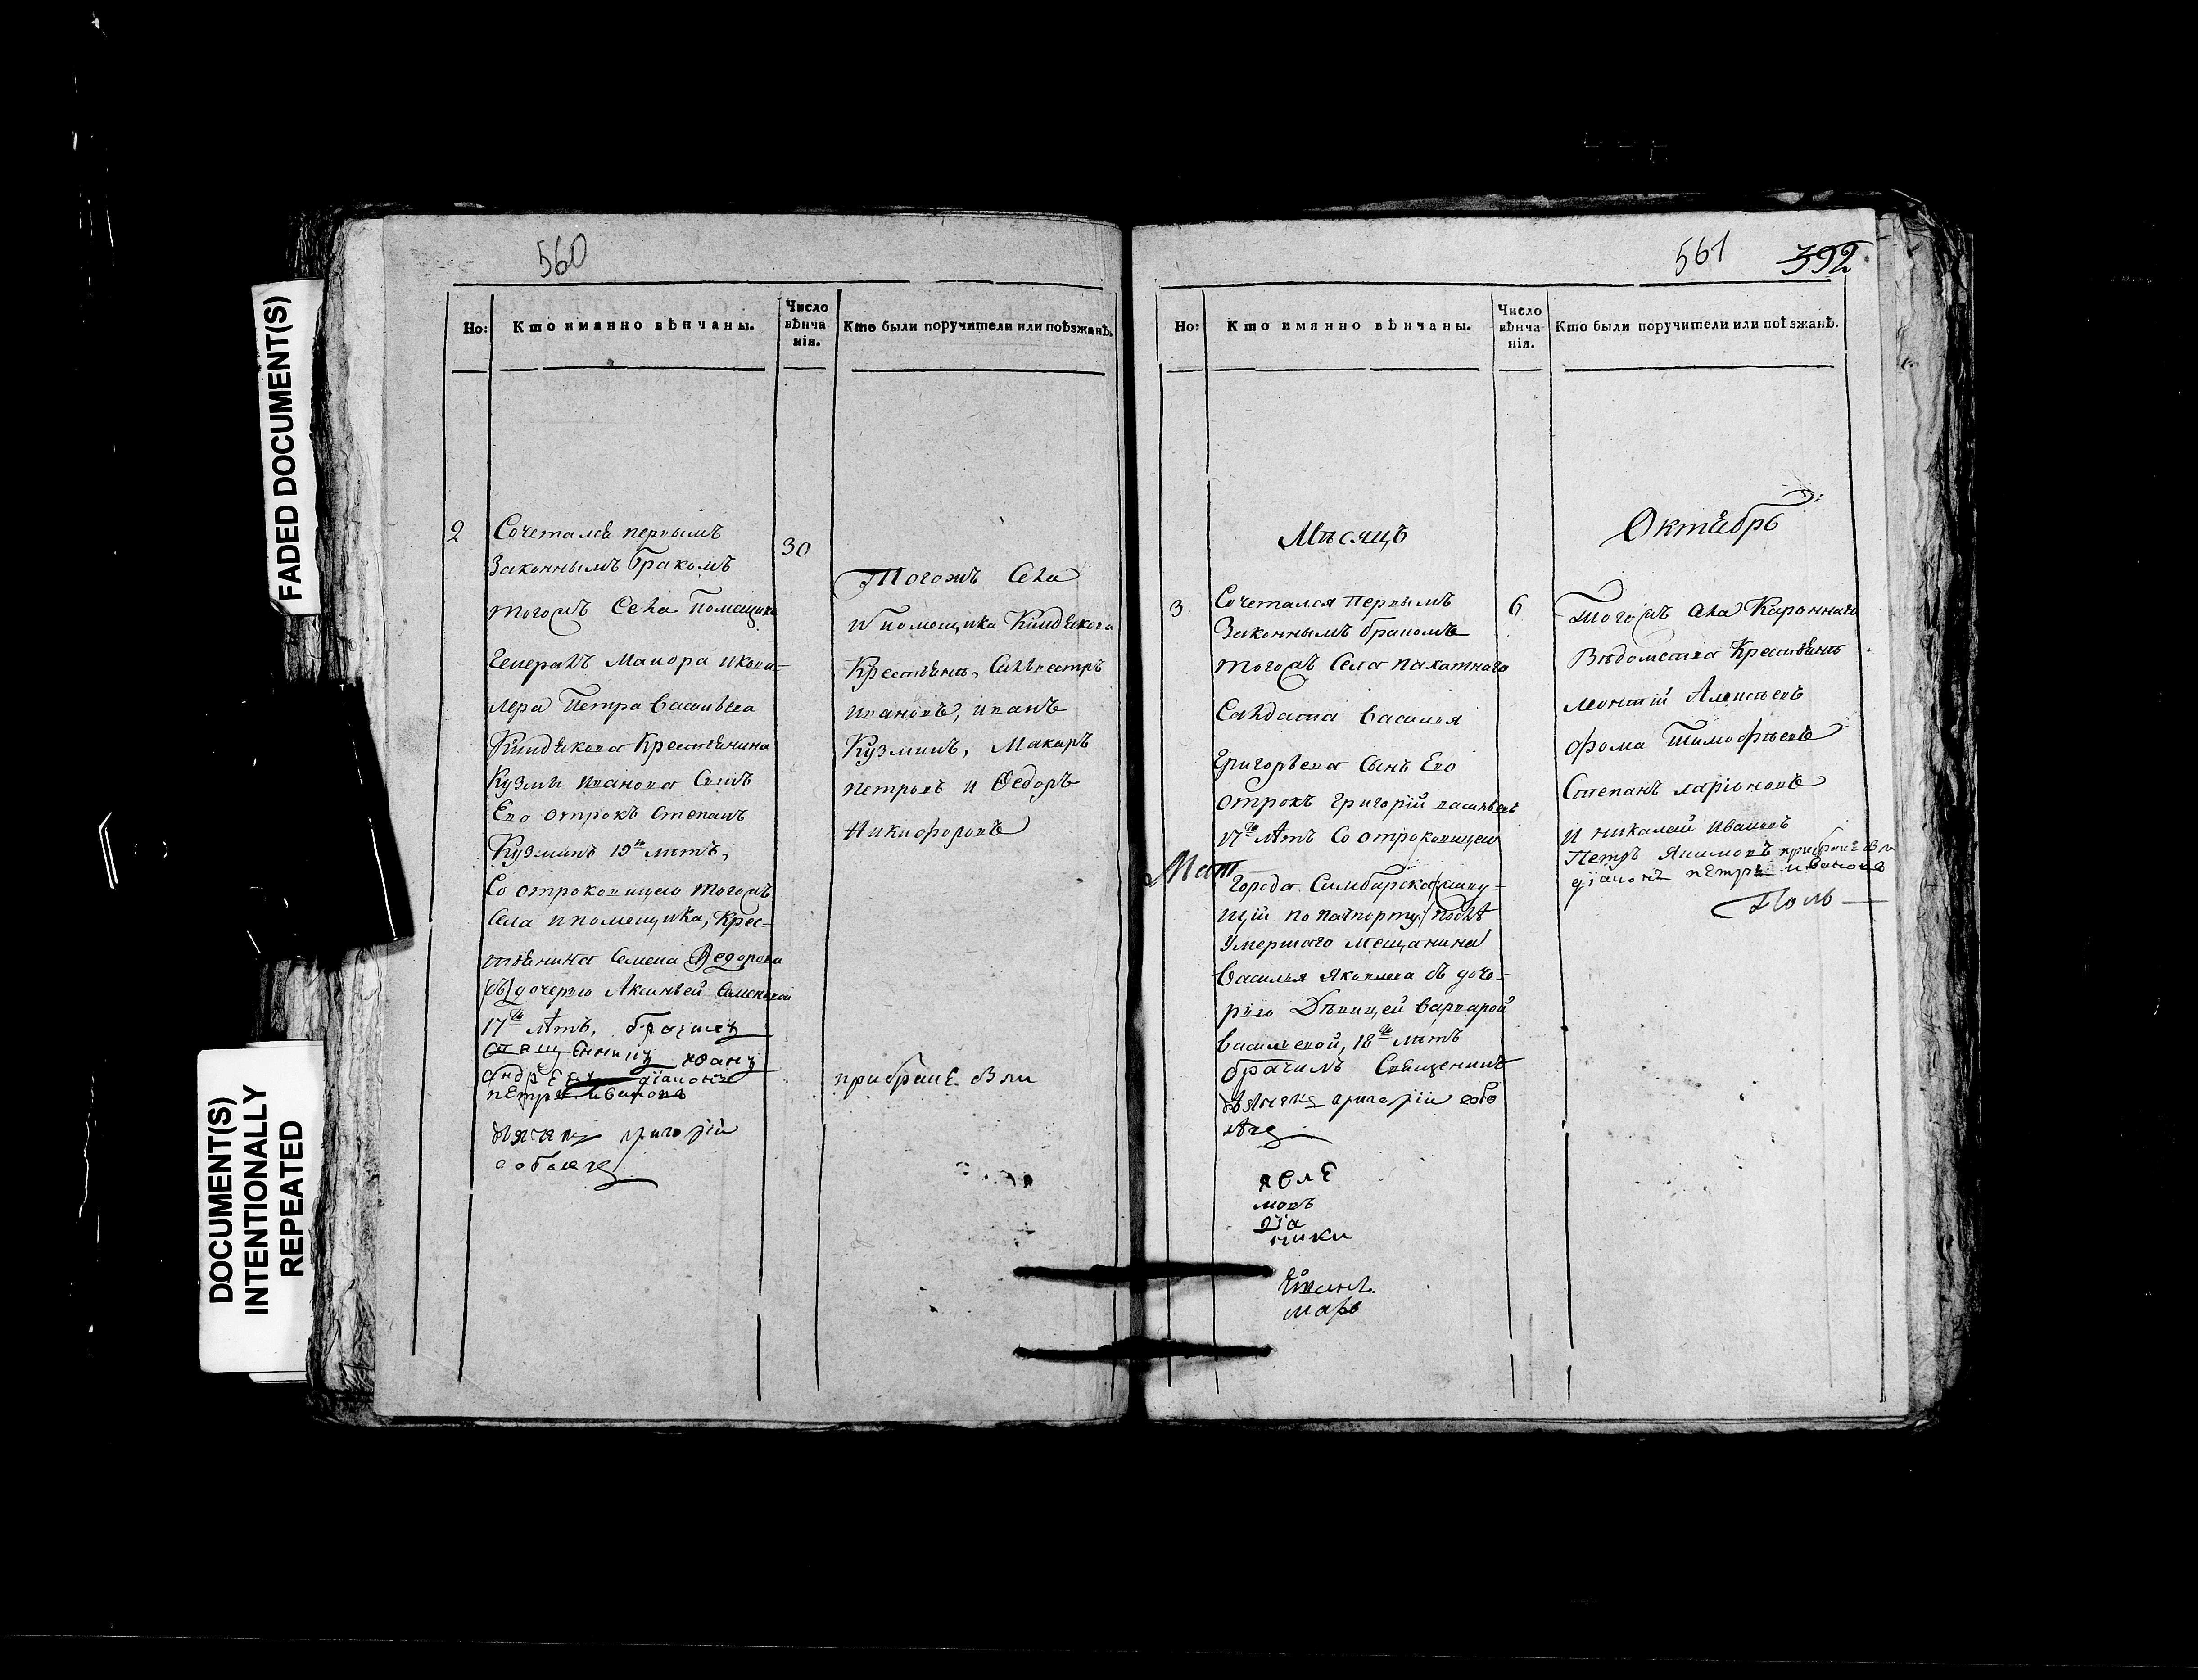 FADED DOCUMENT(S)
DOCUMENT(S)
INTENTIONALLY
REPEATED
560
Но:
Кто имянно вѣнчаны.
Число
вѣнча
нія.
Кто были поручители или поѣзжанѣ.
2
Сочетался первымъ
Законнымъ бракомъ
тогожъ Села Помещика
Генералъ Маиора икава-
лера Петра Васильева
Киндякова Крестьянина
Кузмы иванова Сынъ
Его отрокъ Степанъ
Кузминъ 19ть лѣтъ,
Со отроковицею тогожъ
Села ипомещика, Крес-
тьянина Семена Федорова
съ дочерью Аксиньей Семеновой
17ть лѣтъ, бра
священникъ Иоанъ
андреевъ діаконъ
петръ ивановъ
дьячекъ григорій
соболевъ
30
Тогожъ Села
Ипомещика Киндякова
Крестьянѣ, Силвестръ
ивановъ, иванъ
Кузминъ, Макаръ
петровъ и Федоръ
Никифоровъ
при браке
561
392
Но:
Кто имянно вѣнчаны.
Число
вѣнча
нія.
Кто были поручители или поѣзжанѣ.
Мѣсяцъ
Октябрь
3
Сочетался Первымъ
Законнымъ бракомъ
тогожъ Села пахатнаго
Салдата Василья
Григорьева Сынъ Его
отрокъ григорій васильевъ
17ть лѣтъ Со отроковицею
Города Симбирска
щій по пашпорту послѣ
Умершаго мещанина
Василья Яковлева съ доче-
рью Дѣвицей Варварой
Васильевой, 18ть лѣтъ
Священникъ
дьячекъ григорій собо
левъ
6
Тогожъ села Кароннаго
Вѣдомства Крестьянѣ
леонтій Алексѣевъ
фома Тимофѣевъ
Степанъ ларіоновъ
и николай Ивановъ
Петръ Якимовъ при браке
діаконъ петръ ивановъ